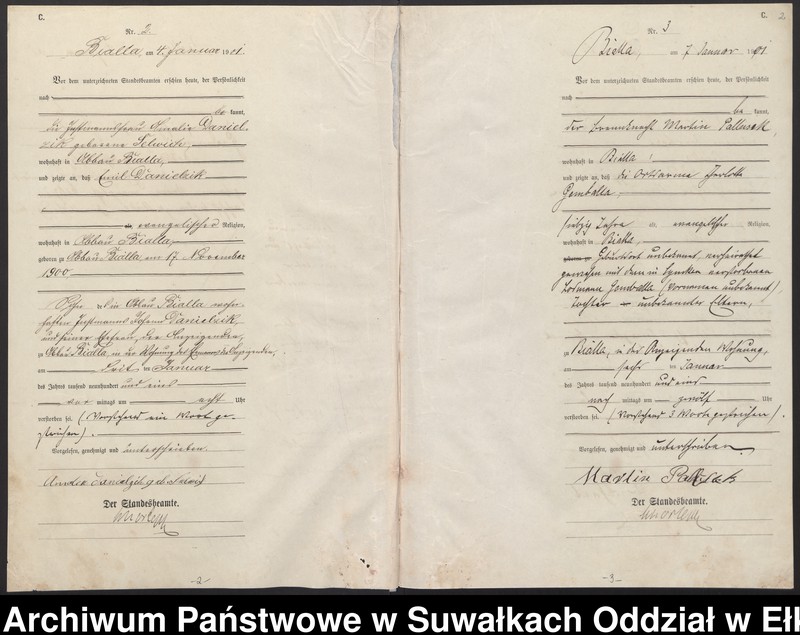 C.
Nr. 2.
Bialla, am 4. Januar 1901.
Vor dem unterzeichneten Standesbeamten erschien heute, der Persönlichkeit
nach
be kannt,
die Instmannsfrau Amalie Daniel-
zik geborene
wohnhaft in Abbau Bialla,
und zeigte an, daß Emil Danielzik
evangelischer Religion,
wohnhaft in Abbau Bialla,
geboren zu Abbau Bialla am 17. November
1900
Sohn des in Abbau Bialla wohn-
haften Instmanns Johann Danielzik,
und seiner Ehefrau, der Anzeigenden,
zu Abbau Bialla, in der Wohnung des Ehemanns der Anzeigenden,
am drit ten Januar
des Jahres tausend neunhundert und eins
vor mittags um acht Uhr
verstorben sei. (Vorstehend ein Wort ge-
strichen).
Vorgelesen, genehmigt und unterschrieben
Danielzik geb.
Der Standesbeamte.
-2-
C. 2
Nr. 3
Bialla, am 7. Januar 1901
Vor dem unterzeichneten Standesbeamten erschien heute, der Persönlichkeit
nach
be kannt,
der Martin
wohnhaft in Bialla
und zeigte an, daß die Ortsarme Charlotte
Gemballa,
siebzig Jahre alt, evangelischer Religion,
wohnhaft in Bialla,
Geburtsort unbekannt, verheirathet
gewesen mit dem in verstorbenen
Losmann Gemballa (Vornamen unbekannt),
Tochter unbekannter Eltern,
zu Bialla, in des Anzeigenden Wohnung,
am sechs ten Januar
des Jahres tausend neunhundert und eins
nach mittags um zwölf Uhr
verstorben sei. (Vorstehend 3 Worte gestrichen).
Vorgelesen, genehmigt und unterschrieben
Martin
Der Standesbeamte.
-3-
Archiwum Państwowe w Suwałkach Oddział w Eł